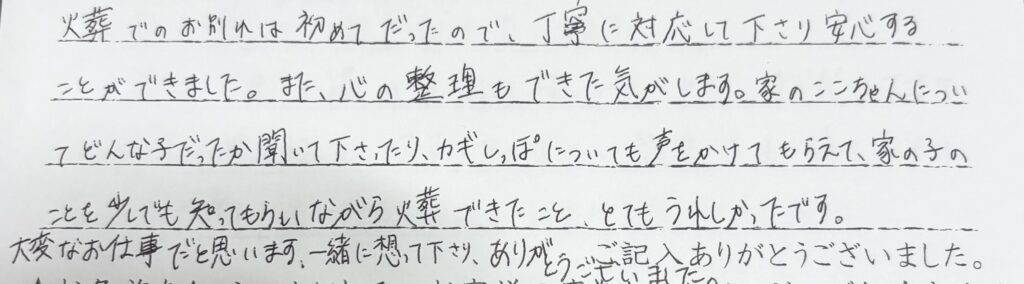 火葬でのお別れは初めてだったので、丁寧に対応して下さり安心する
ことができました。また、心の整理もできた気がします。家のここちゃんについ
てどんな子だったか聞いて下さったり、カギしっぽについても声をかけてもらえて、家の子の
ことを少しでも知ってもらいながら火葬できたこと、とてもうれしかったです。
大変なお仕事だと思います、一緒に想って下さり、ありがとうございました。
ご記入ありがとうございました。